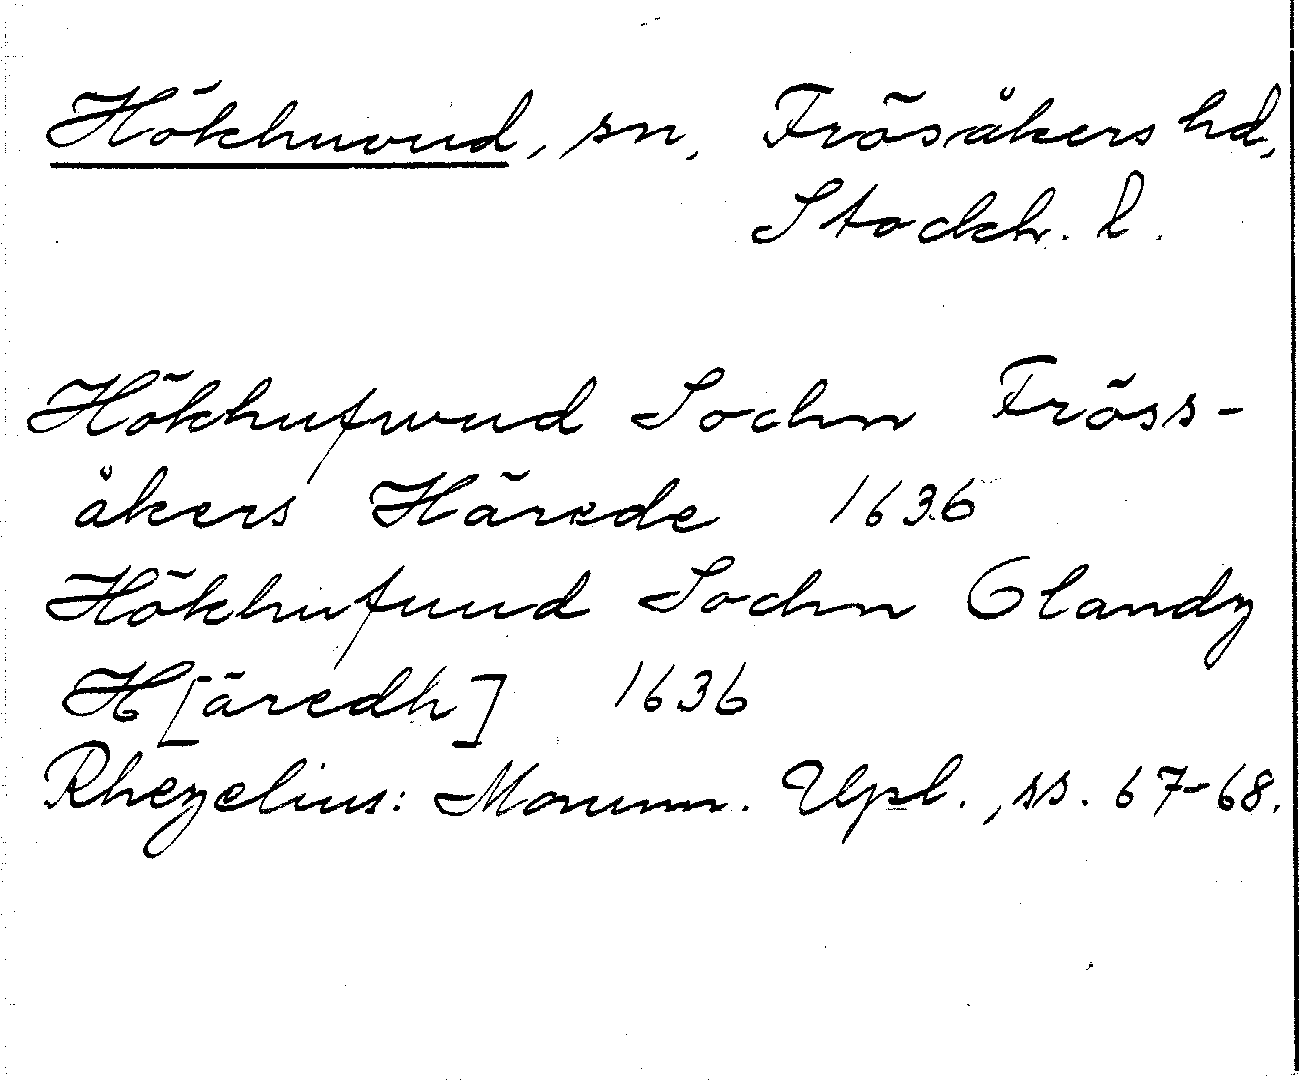 Hökhuvud, sn, Frösåkers hd,
Stockh. l.
Hökhufwud Sochn Fröss-
åkers Härede 1636
Hökhufuud Sochn Olandz
H[äredh] 1636
Rhezelius: Monum. Upl., ss. 67-68.